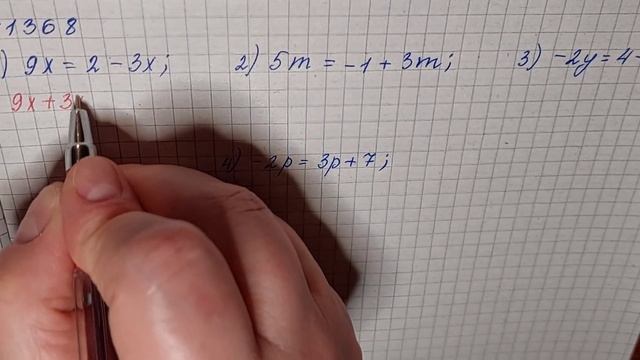 1368
) 9x = 2 - 3x; 2) 5m = -1 + 3m; 3) -2y = 4 -
9x + 3
4) -2p = 3p + 7;